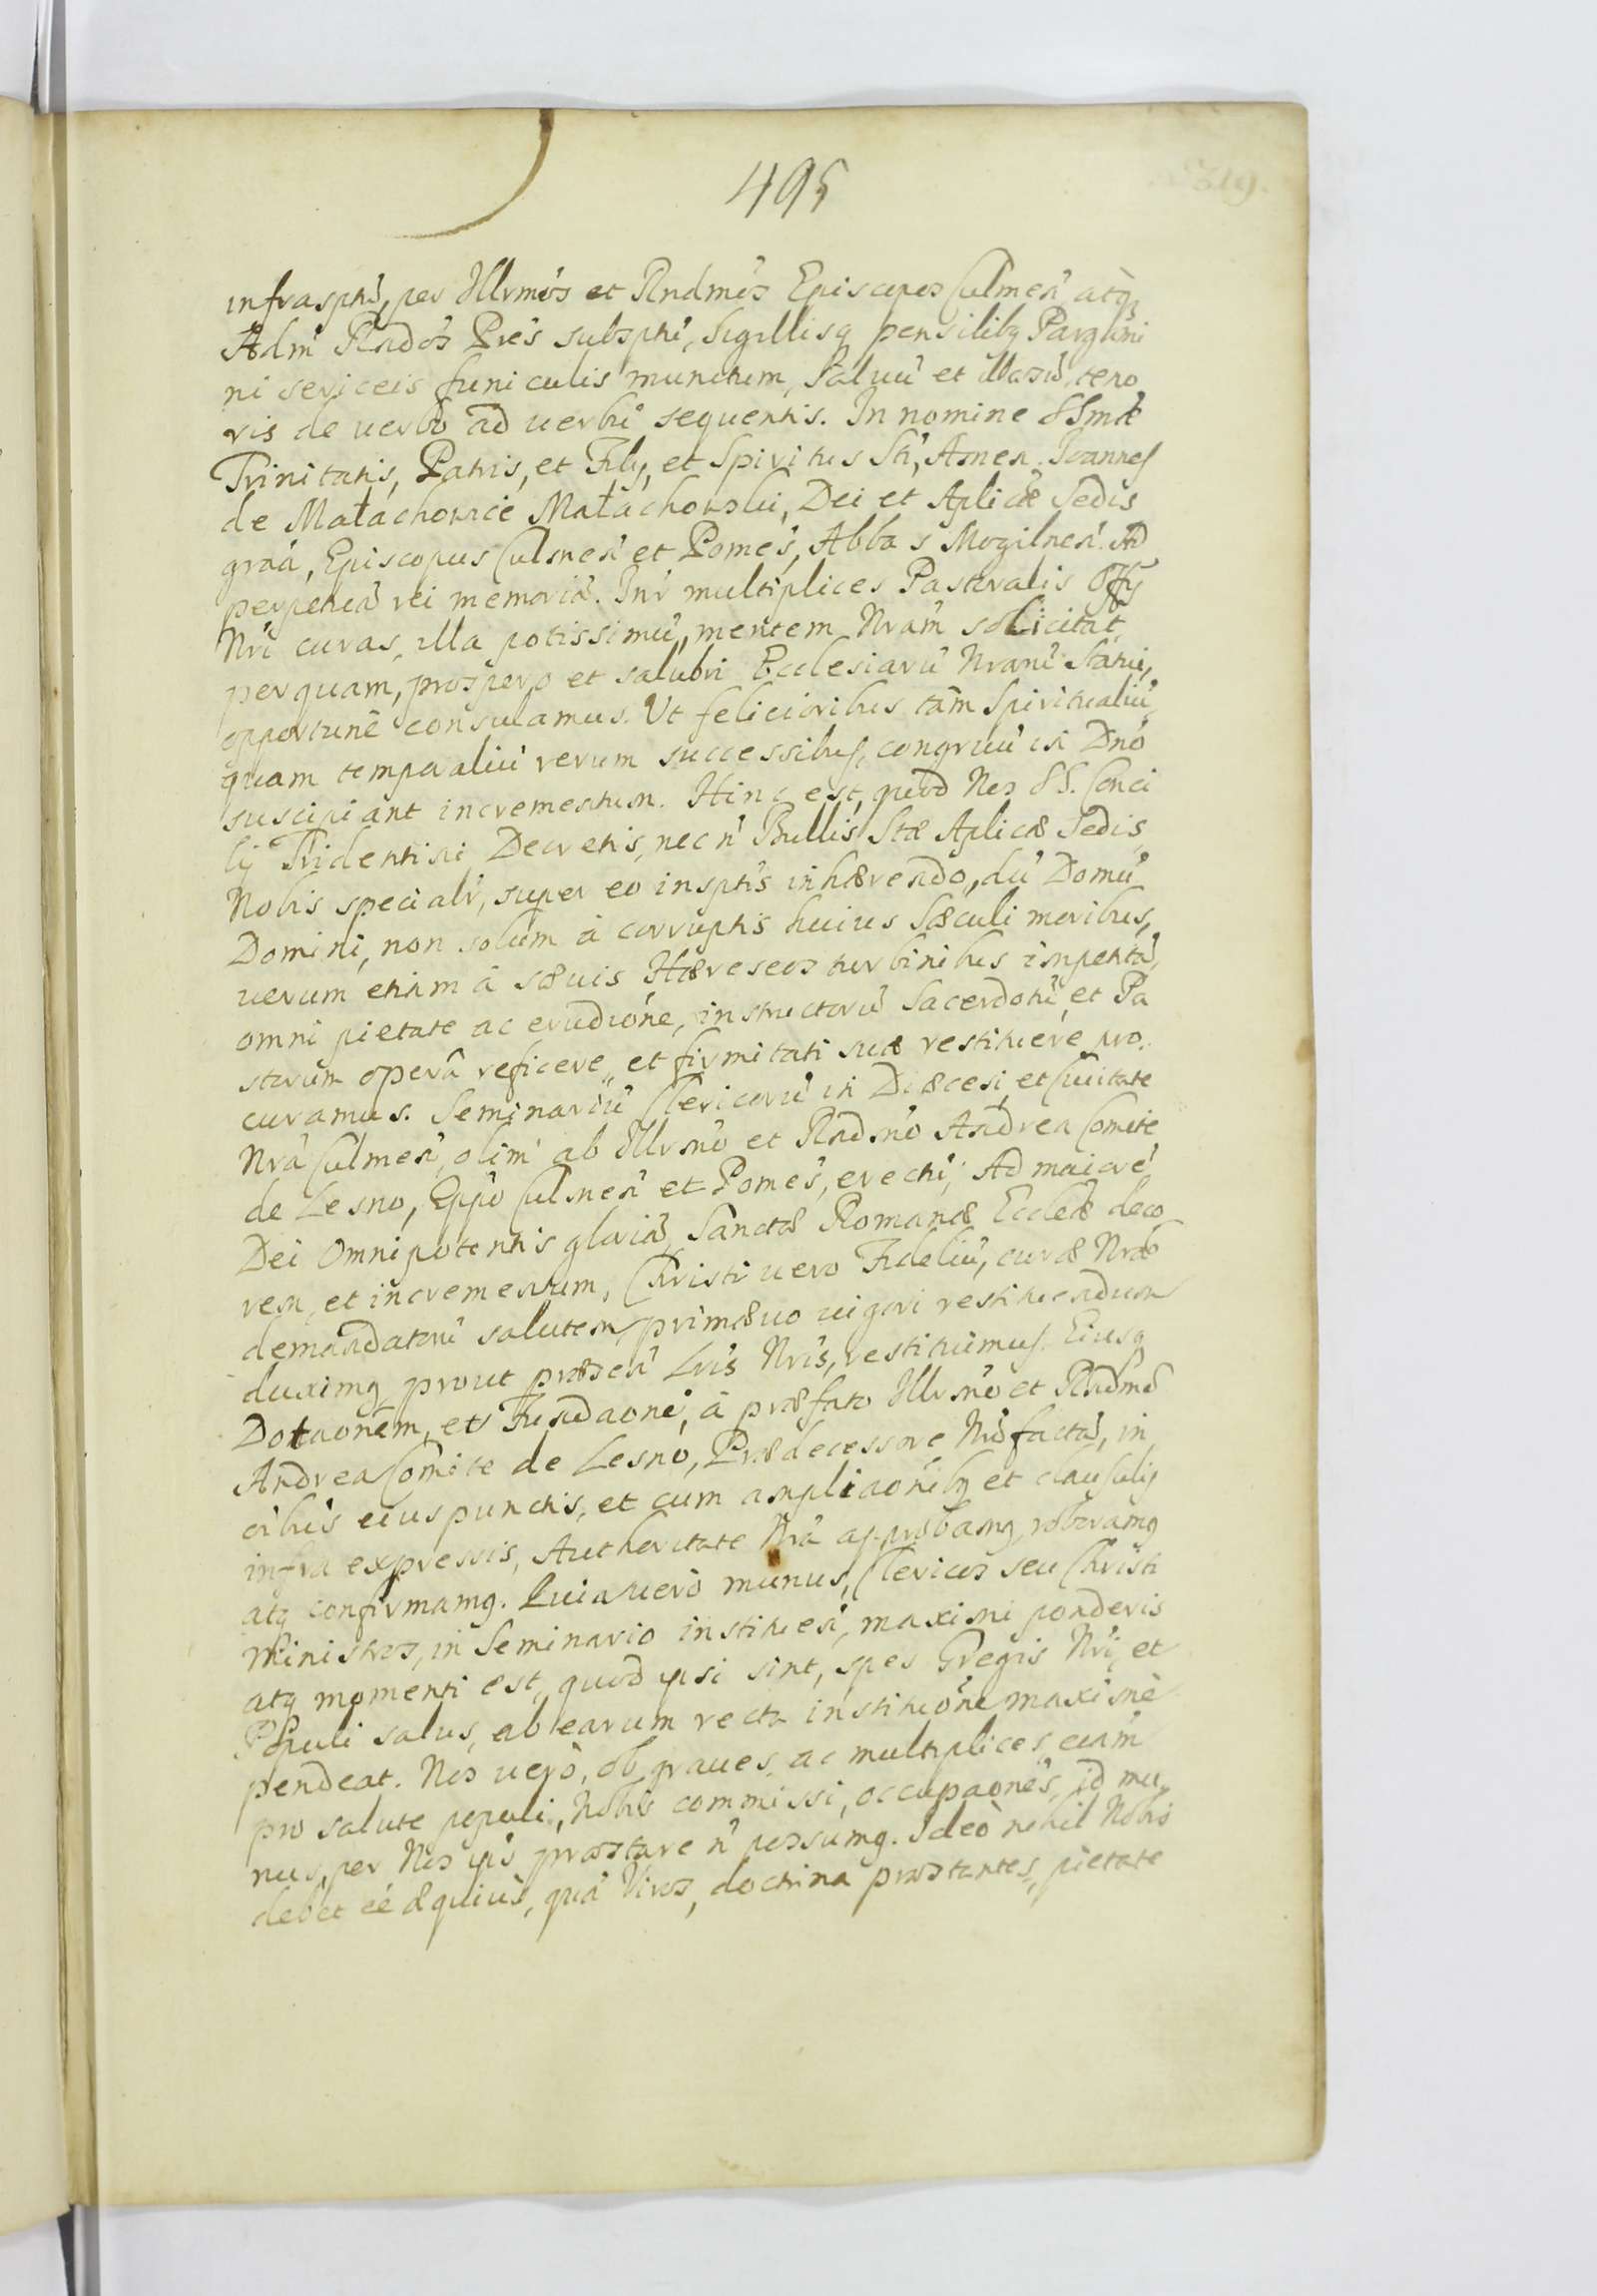 495
infrasptū, per Illrmos et Rndmos Episcopos Culmeń atq3
Adm̃ Rndos Pres subsptū, Sigillisq3 pensilib9 Pargami
ni sericeis funiculis munitum, Saluū et illaesū, teno
ris de uerbo ad uerbū sequentis. In nomine SSmae
Trinitatis, Patris, et Filij, et Spiritus Sti, Amen. Ioannes
de Małachowice Małachowski, Dei et Aplicae Sedis
graã, Episcopus Culmeń et Pomes̃, Abbas Mogilneń. Ad
perpetuã rei memoriã. Inr̃ multiplices Pastoralis Offij
Nri curas, illa potissimū, mentem Nram solicitat
per quam, prospero et salubri Ecclesiarū Nrarū Statui,
opportunè consulamus. Ut felicioribus tàm Spiritualiū,
quam temporaliū rerum successibus, congruū in Dnõ
suscipiant incrementum. Hinc est, quod Nos SS. Conci
lij Tridentini Decretis, nec ñ Bullis Stae Aplicae Sedis,
Nobis specialr̃, super eo insptis inhaerendo, dū Domū
Domini, non solùm à corruptis huius Saeculi moribus,
uerum etiàm à saeuis Haereseos turbinibus impetitã,
omni pietate ac erudione, instructorū Sacerdotū, et Pa
storum operâ reficere, et firmitati suae restituere pro
curamus. Seminariū Clericorū in Diaecesi, et Ciuitate
Nrã Culmeń, olim ab Illrmo et Rndmo Andrea Comite
de Lesno, Eppo Culmeń et Pomes̃, erectū, Ad maiorẽ
Dei Omnipotentis gloriã, Sanctae Romanae Eccleae deco
rem, et incrementum, Christi uero Fideliū, curae Nrae
demandatorū salutem, primaeuo uigori restituendum
duxim9 prout praeseñ Lris Nris, restituimus. Eiusq3
Dotaonem, et Fundaonẽ, à praefato Illrmo et Rndmo
Andrea Comite de Lesno, Praedecessore Nro factã, in
oibus eius punctis, et cum ampliaonib9 et clausulis
infra expressis, Authoritate Nrã approbam9, roboram9
atq3 confirmam9. Quia uerò munus, Clericos seu Christi
Ministros, in Seminario instituen̄, maximi ponderis
atq3 momenti est, quod ipsi sint, spes Gregis Nri, et
Populi salus, ab earum recta institutione maximè
pendeat. Nos uerò, ob graues, ac multiplices, curàm
pro salute populi, Nobis commissi, occupaones, id mu
nus, per Nos ipsos praestare ñ possum9. Ideò nihil Nobis
debet eẽ aequius, quã Viros, doctrina praestantes, pietate